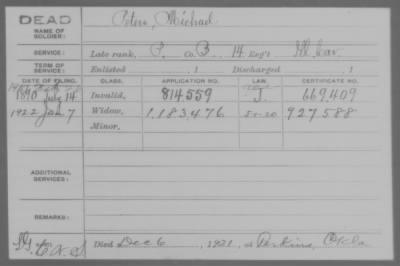 DEAD
NAME OF SOLDIER:
Peters, Michael
SERVICE:
Late rank, P. Co. B, 14 Reg't Ill. Cav.
TERM OF SERVICE:
Enlisted , 1 Discharged , 1
DATE OF FILING. CLASS. APPLICATION NO. LAW. CERTIFICATE NO.
1890 July 14 Invalid, 814559 J. 669,409
1922 Jan 7 Widow, 1,183,476. 5-1-20 927588
Minor,
ADDITIONAL SERVICES:
REMARKS:
Died Dec 6, 1921, at Perkins, Okla